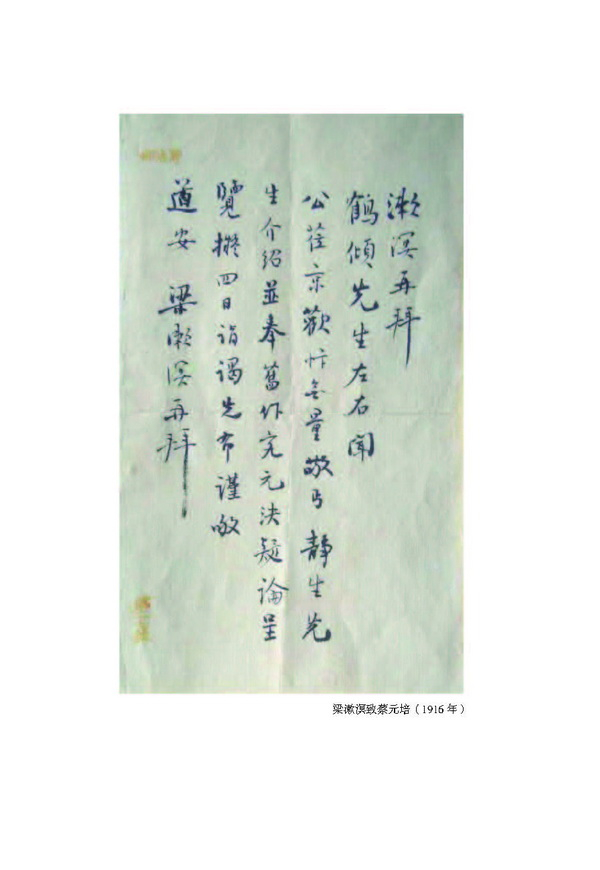 漱溟再拜
鶴傾先生左右聞
公莅京歡忭無量敬丐 靜生先
生介紹並奉舊作究元決疑論呈
覽擬四日詣謁先布謹敬
道安 梁漱溟再拜
梁漱溟致蔡元培（1916 年）